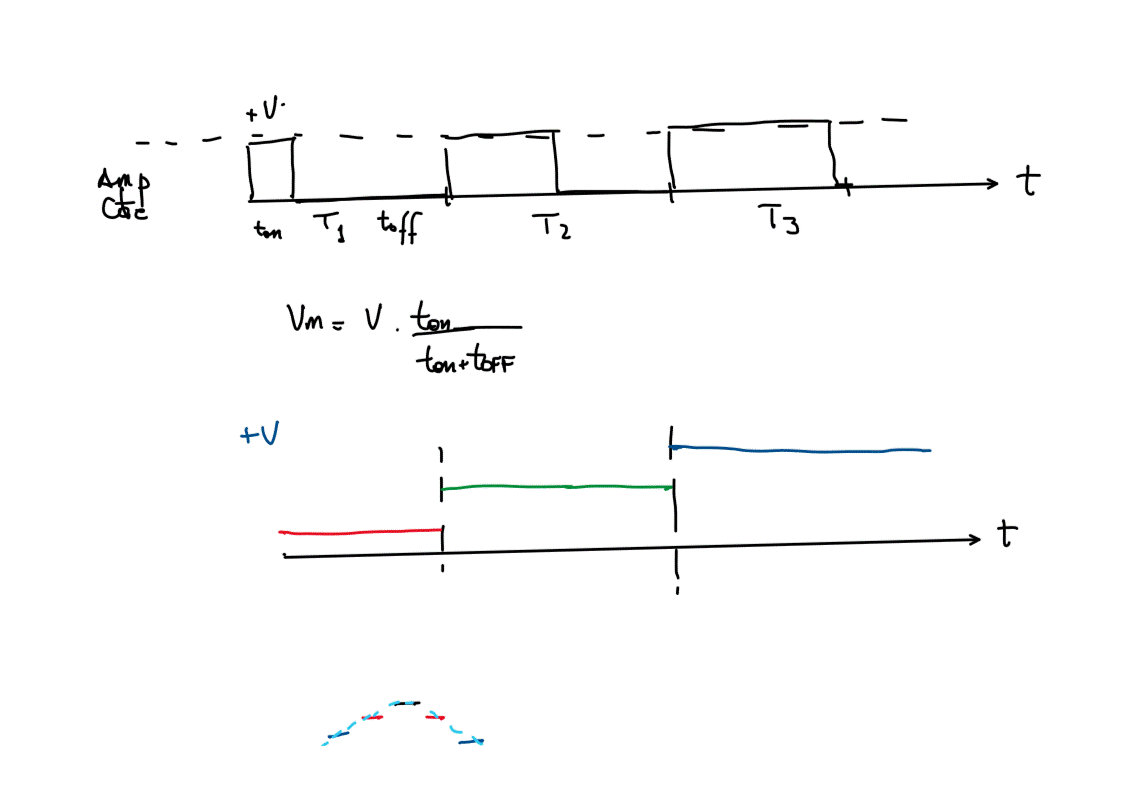 +V
Amp
Cte
t
ton T1 toff T2 T3
Vm = V . ton
ton+toFF
+V
t